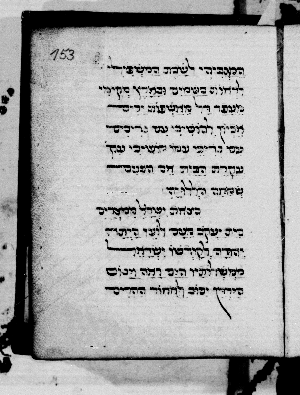 153
המגביהי לשבת המשפילי
לראות בשמים ובארץ מקימי
מעפר דל מאשפות ירים
אביון להושיבי עם נדיבים
עם נדיבי עמו מושיבי עק
עקרת הבית אם הבנים
שמחה הללויה
בצאת ישראל ממצרים
בית יעקב מעם לועז היתה
יהודה לקדשו ישראל
ממשלותיו הים ראה וינוס
הירדן יסוב לאחור ההרים